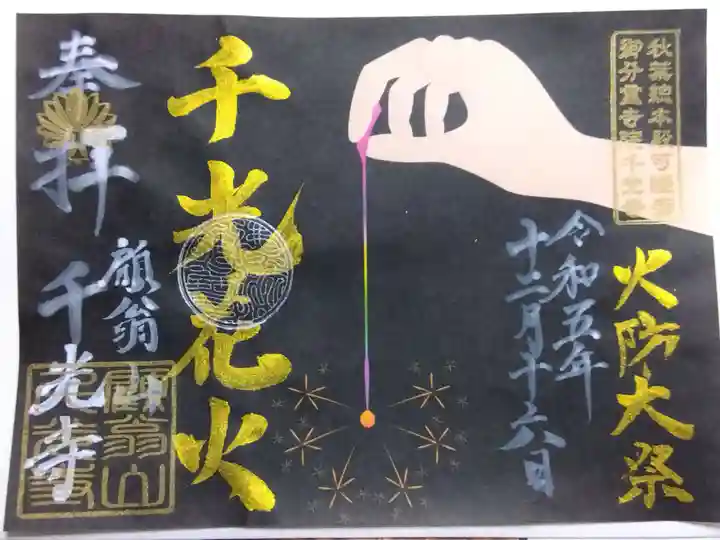 秋葉總本殿可睡斎
御分霊寺院千光寺
火防大祭
令和五年
十二月十六日
千光と花火
奉拝
願翁山
千光寺
願翁山